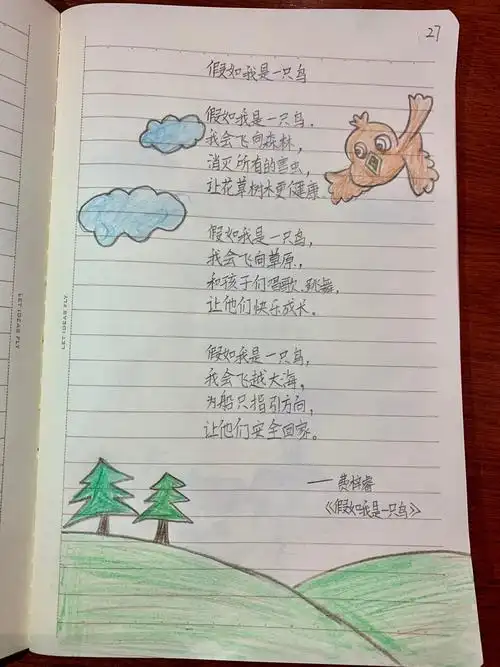 27
假如我是一只鸟
假如我是一只鸟,
我会飞向森林,
消灭所有的害虫,
让花草树木更健康。
假如我是一只鸟,
我会飞向草原,
和孩子们唱歌、跳舞,
让他们快乐成长。
假如我是一只鸟,
我会飞越大海,
为船只指引方向,
让他们安全回家。
——费梓睿
《假如我是一只鸟》
LET IDEAS FLY
LET IDEAS FLY